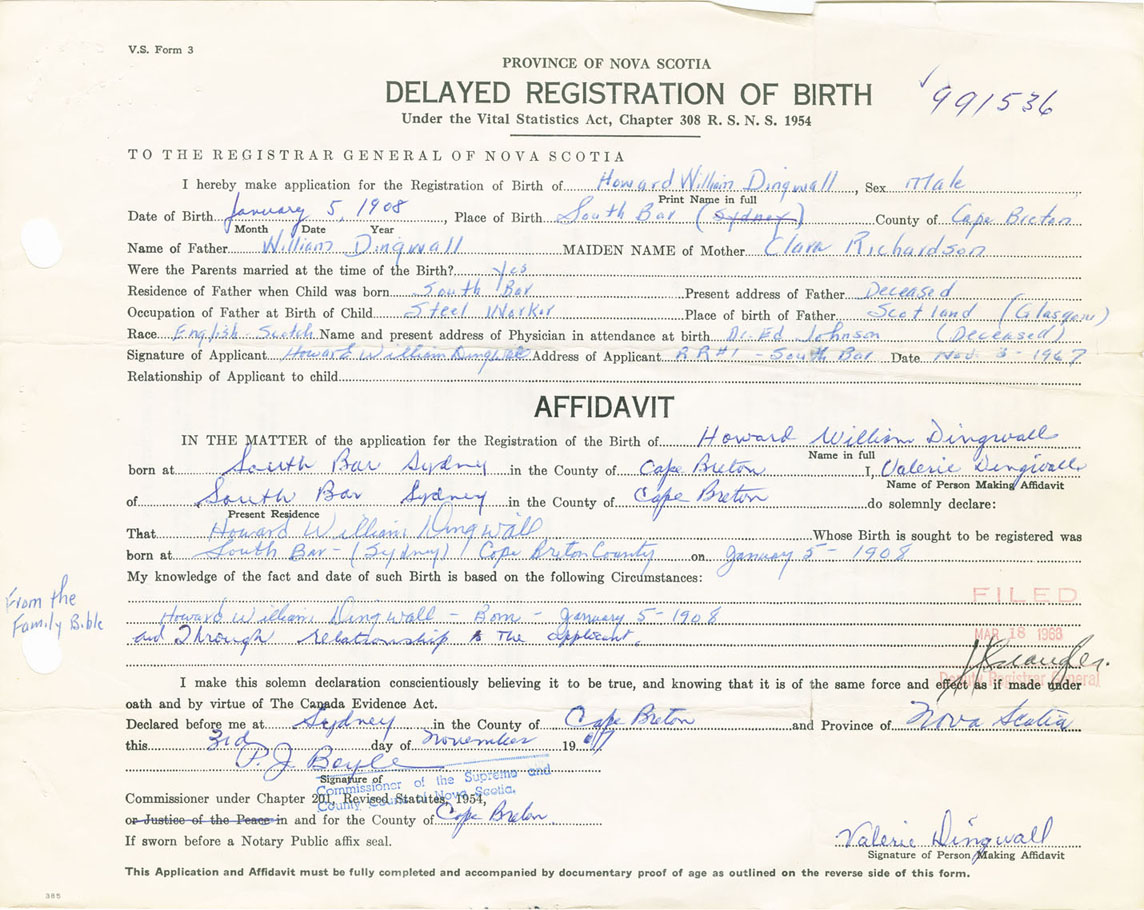 V.S. Form 3
PROVINCE OF NOVA SCOTIA
DELAYED REGISTRATION OF BIRTH
991536
Under the Vital Statistics Act, Chapter 308 R. S. N. S. 1954
TO THE REGISTRAR GENERAL OF NOVA SCOTIA
I hereby make application for the Registration of Birth of Howard William Dingwall, Sex Male
Print Name in full
Date of Birth January 5, 1908, Place of Birth South Bar (Sydney) County of Cape Breton
Month Date Year
Name of Father William Dingwall MAIDEN NAME of Mother Clara Richardson
Were the Parents married at the time of the Birth? Yes
Residence of Father when Child was born South Bar Present address of Father Deceased
Occupation of Father at Birth of Child Steel Worker Place of birth of Father Scotland (Glasgow)
Race English-Scotch Name and present address of Physician in attendance at birth Dr. Ed Johnson (Deceased)
Signature of Applicant Howard William Dingwall Address of Applicant RR#1 - South Bar Date Nov. 3 - 1967
Relationship of Applicant to child
AFFIDAVIT
IN THE MATTER of the application for the Registration of the Birth of Howard William Dingwall
Name in full
born at South Bar Sydney in the County of Cape Breton I, Valerie Dingwall
Name of Person Making Affidavit
of South Bar Sydney in the County of Cape Breton do solemnly declare:
Present Residence
That Howard William Dingwall Whose Birth is sought to be registered was
born at South Bar - (Sydney) Cape Breton County on January 5 - 1908
My knowledge of the fact and date of such Birth is based on the following Circumstances:
From the
Family Bible
FILED
Howard William Dingwall - Born - January 5 - 1908
and Through relationship to The applicant.
MAR 18 1968
Deputy Registrar General
I make this solemn declaration conscientiously believing it to be true, and knowing that it is of the same force and effect as if made under
oath and by virtue of The Canada Evidence Act.
Declared before me at Sydney in the County of Cape Breton and Province of Nova Scotia
this 3rd day of November 1967
P. J. Boyle
Signature of
Commissioner of the Supreme and
County Courts of Nova Scotia.
Commissioner under Chapter 201, Revised Statutes, 1954,
or Justice of the Peace in and for the County of Cape Breton.
If sworn before a Notary Public affix seal.
Valerie Dingwall
Signature of Person Making Affidavit
This Application and Affidavit must be fully completed and accompanied by documentary proof of age as outlined on the reverse side of this form.
385